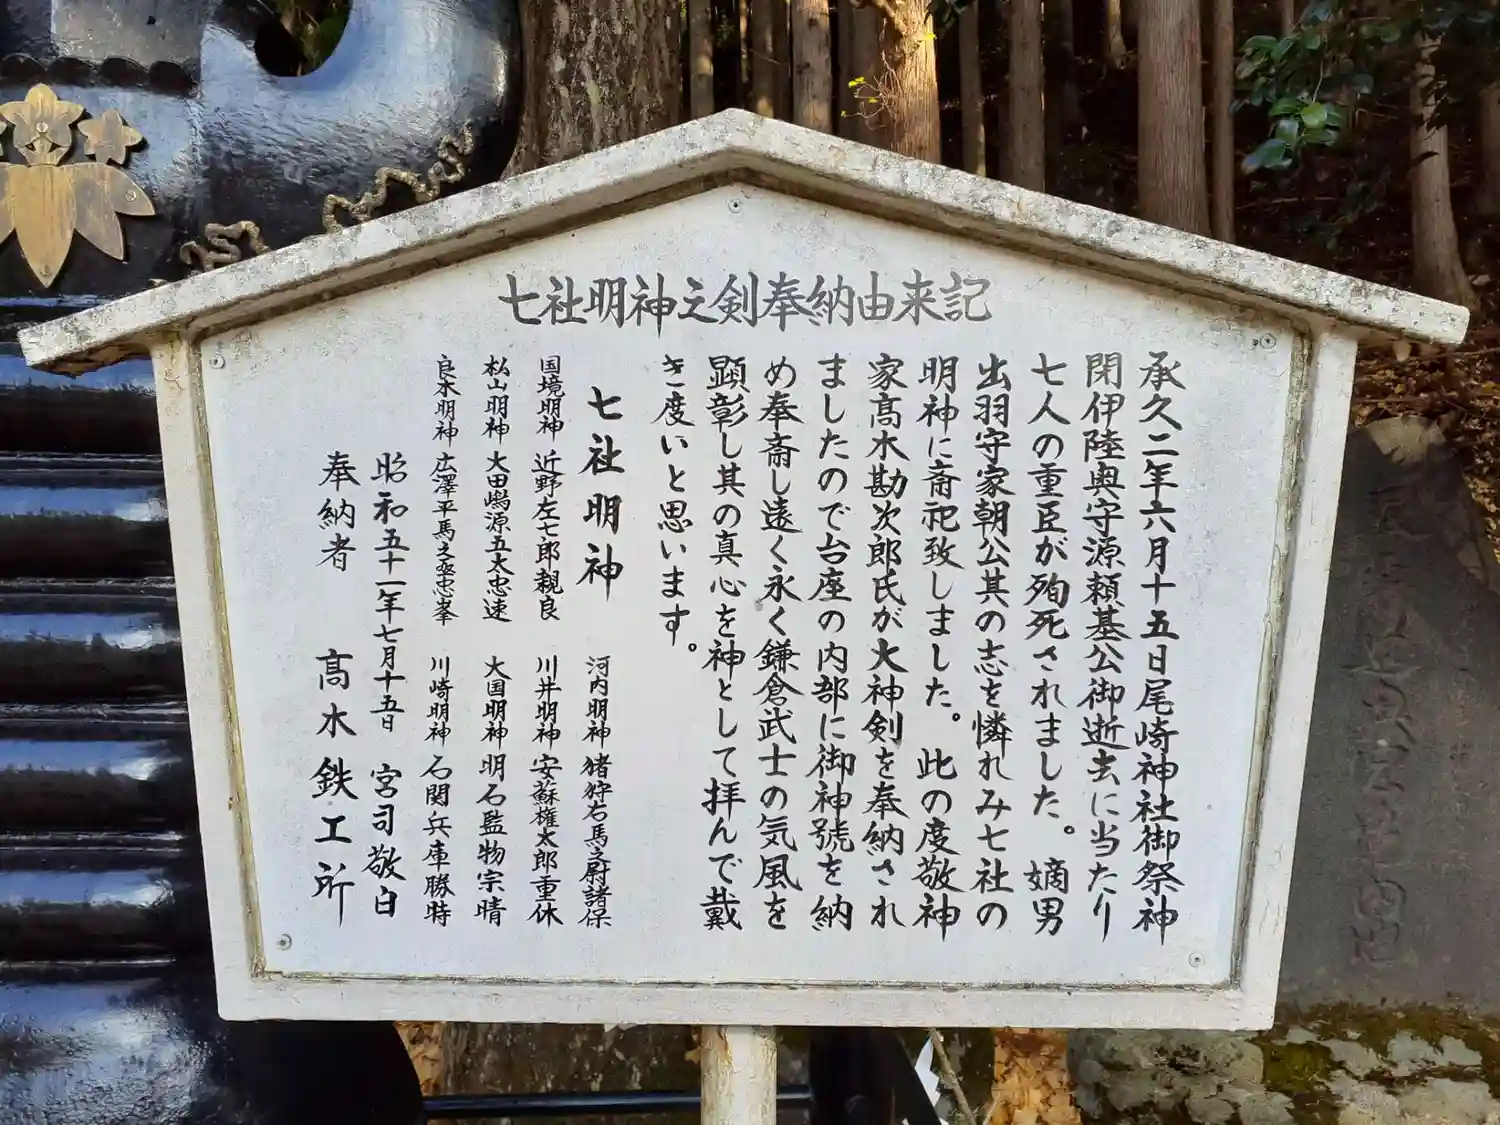 七社明神之剣奉納由来記
承久二年六月十五日尾崎神社御祭神
閉伊陸奥守源頼基公御逝去に当たり
七人の重臣が殉死されました。嫡男
出羽守家朝公其の志を憐れみ七社の
明神に斎祀致しました。此の度敬神
家髙水勘次郎氏が大神剣を奉納され
ましたので台座の内部に御神號を納
め奉斎し遠く永く鎌倉武士の気風を
顕彰し其の真心を神として拝んで戴
き度いと思います。
七社明神
河内明神 猪狩右馬之尉諸保
国境明神 近野左七郎親良
川井明神 安蘇権太郎重休
松山明神 大田嶋源五大忠速
大国明神 明石監物宗晴
良木明神 広澤平馬之丞忠峯
川崎明神 石関兵庫勝特
昭和五十一年七月十五日 宮司敬白
奉納者 髙水鉄工所